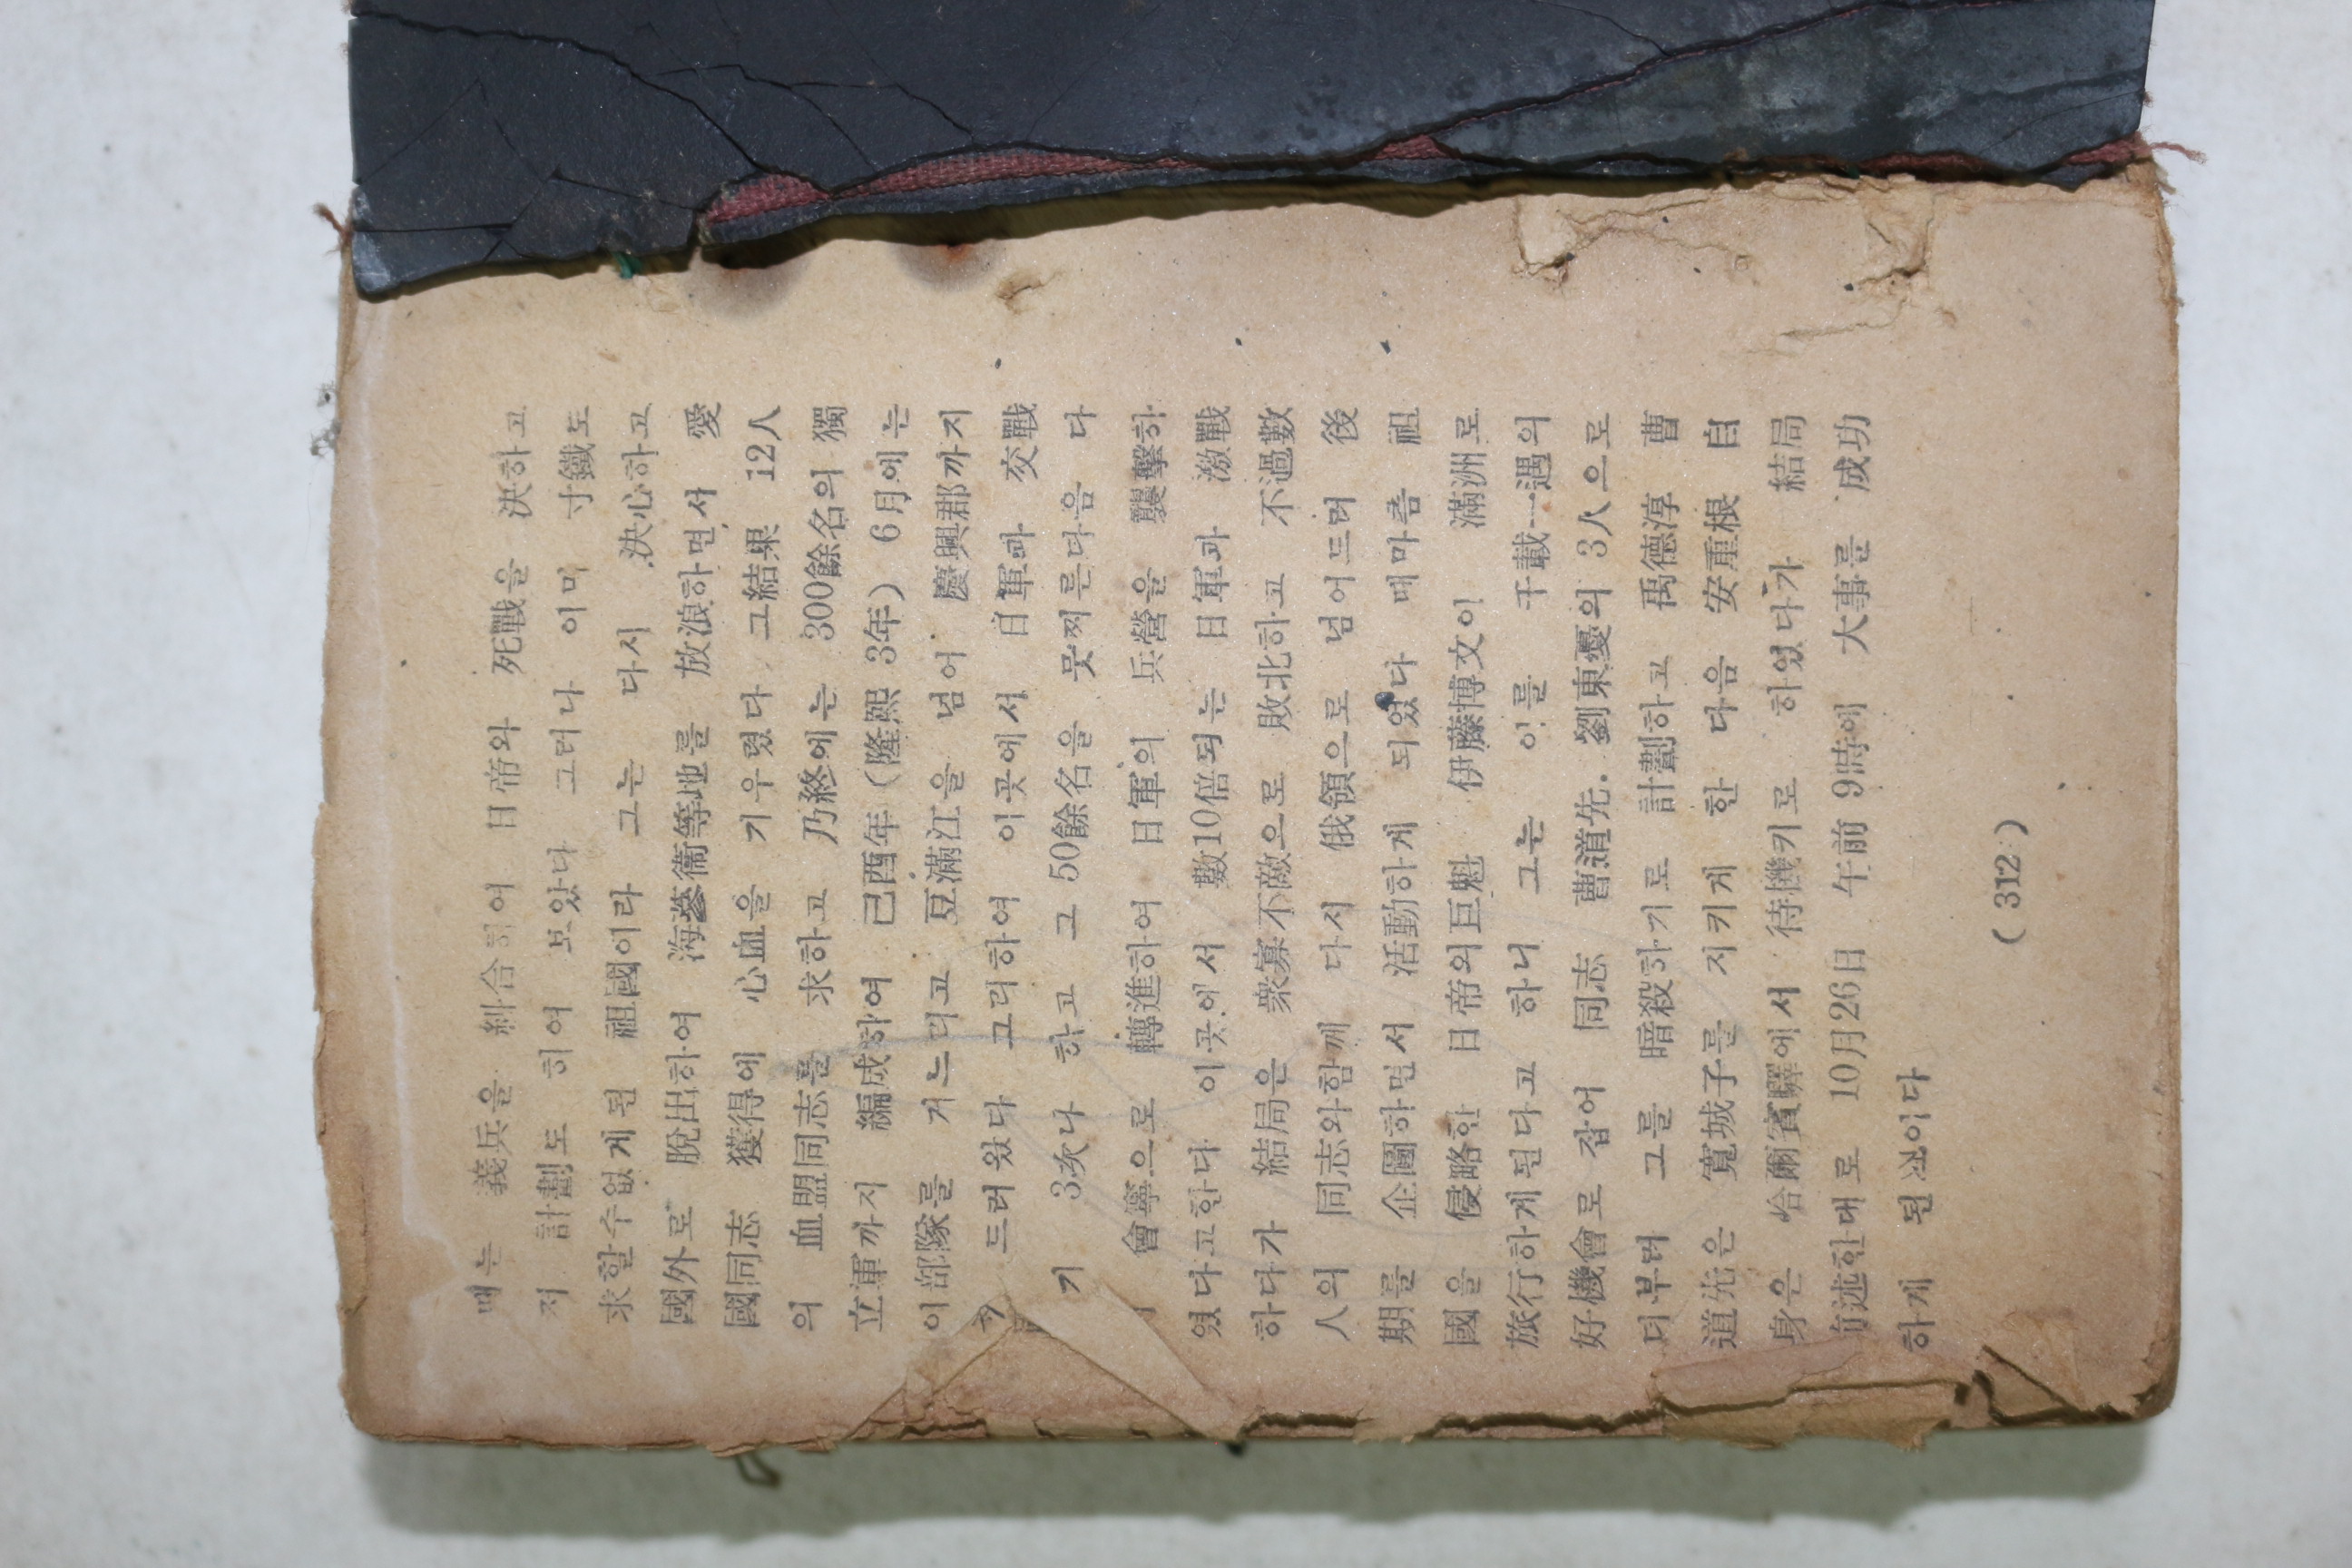 때는 義兵을 糾合하여 日帝와 死戰을 決하고
저 計劃도 하여 보았다 그러나 이미 寸鐵도
求할수없게된 祖國이라 그는 다시 決心하고
國外로 脫出하여 海蔘衞等地를 放浪하면서 愛
國同志 獲得에 心血을 기우렸다 그結果 12人
의 血盟同志를 求하고 乃終에는 300餘名의 獨
立軍까지 編成하여 己酉年 (隆熙 3年) 6月에는
이部隊를 거느리고 豆滿江을 넘어 慶興郡까지
드러왔다 그리하여 이곳에서 日軍과 交戰
기 3次나 하고 그 50餘名을 뭇찌른다음 다
會寧으로 轉進하여 日軍의 兵營을 襲擊하
였다고한다 이곳에서 數10倍되는 日軍과 激戰
하다가 結局은 衆寡不敵으로 敗北하고 不過數
人의 同志와함께 다시 俄領으로 넘어드러 後
期를 企圖하면서 活動하게 되었다 때마츰 祖
國을 侵略한 日帝의巨魁 伊藤博文이 滿洲로
旅行하게된다고 하니 그는 이를 千載一遇의
好機會로 잡어 同志 曹道先. 劉東憂의 3人으로
더부러 그를 暗殺하기로 計劃하고 禹德淳 曹
道先은 寬城子를 지키게 한 다음 安重根 自
身은 哈爾賓驛에서 待機키로 하였다가 結局
前述한대로 10月26日 午前 9時에 大事를 成功
하게 된것이다
( 312 )